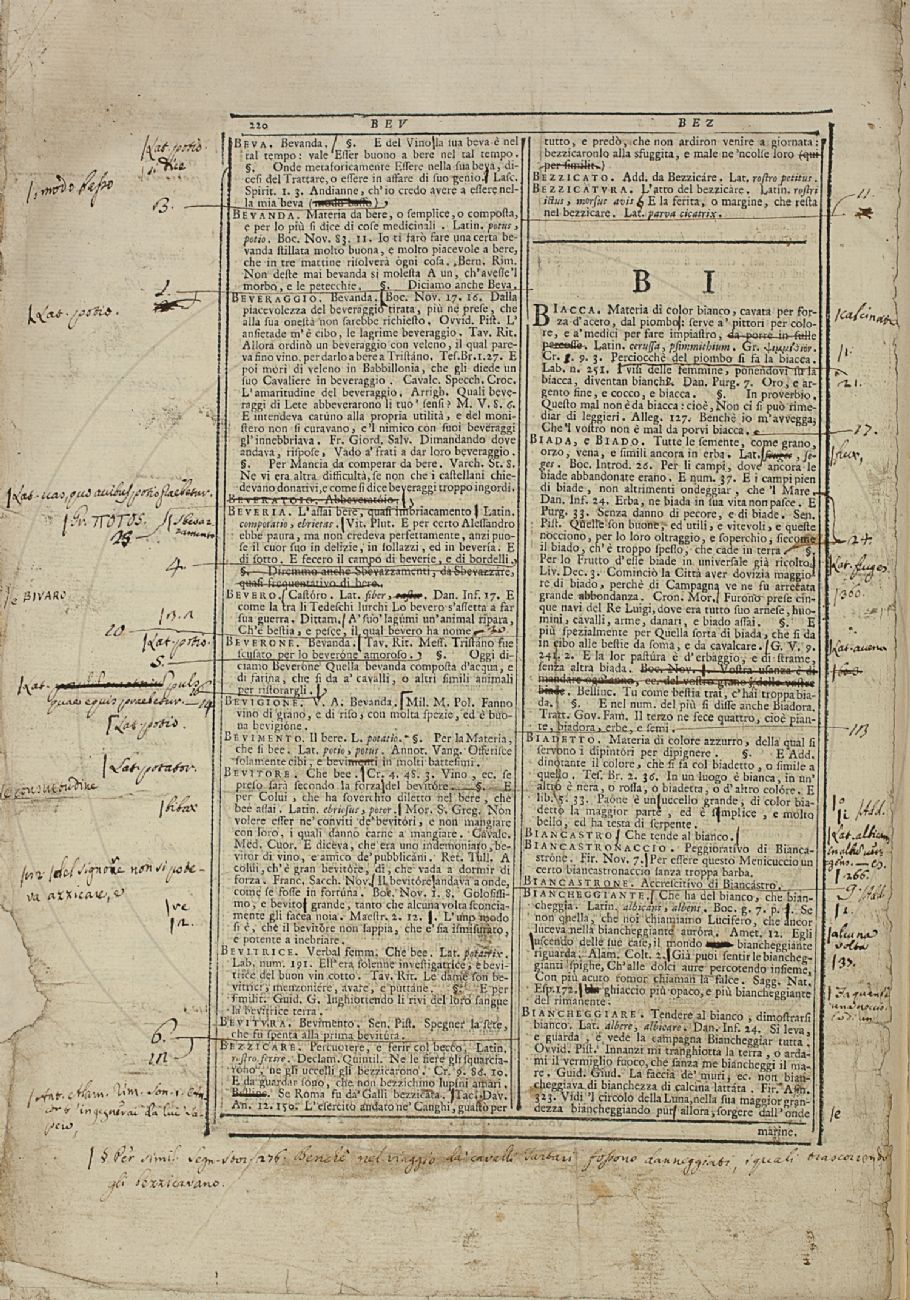 220 BEV BEZ
BEVA. Bevanda. §. E del Vino la sua beva è nel
tal tempo: vale Esser buono a bere nel tal tempo.
§. Onde metaforicamente Essere nella sua beva, di-
cesi del Trattare, o essere in affare di suo genio. Lasc.
Spirit. 1. 3. Andianne, ch'io credo avere a essere nel-
la mia beva (modo basso)
BEVANDA. Materia da bere, o semplice, o composta,
e per lo più si dice di cose medicinali. Latin. potus,
potio. Boc. Nov. 83. 11. Io ti farò fare una certa be-
vanda stillata molto buona, e molto piacevole a bere,
che in tre mattine risolverà ogni cosa. Bern. Rim.
Non deste mai bevanda si molesta A un, ch'avesse 'l
morbo, e le petecchie. §. Diciamo anche Beva.
BEVERAGGIO. Bevanda. Boc. Nov. 17. 16. Dalla
piacevolezza del beveraggio tirata, più ne prese, che
alla sua onestà non sarebbe richiesto. Ovvid. Pist. L'
ansietade m'è cibo, le lagrime beveraggio. Tav. Rit.
Allora ordinò un beveraggio con veleno, il qual pare-
va fino vino, per darlo a bere a Tristáno. Tes. Br. 1. 27. E
poi morì di veleno in Babbillonia, che gli diede un
suo Cavaliere in beveraggio. Cavalc. Specch. Croc.
L'amaritudine del beveraggio. Arrigh. Quali beve-
raggi di Lete abbeverarono li tuo' sensi? M. V. 8. 6.
E intendeva catúno alla propria utilità, e del moni-
stero non si curavano, e 'l nimico con suoi beveraggi
gl' innebbriava. Fr. Giord. Salv. Dimandando dove
andava, rispose, Vado a' frati a dar loro beveraggio.
§. Per Mancia da comperar da bere. Varch. St. 8.
Ne vi era altra difficultà, se non che i castellani chie-
devano donativi, e come si dice beveraggi troppo ingordi.
BEVERATOIO. Abbeveratóio.
BEVERIA. L'assai bere, quasi imbriacamento Latin.
compotatio, ebrietas. Vit. Plut. E per certo Alessandro
ebbe paura, ma non credeva perfettamente, anzi puo-
se il cuor suo in delizie, in sollazzi, ed in beverìa. E
di sotto. E fecero il campo di beverie, e di bordelli.
§. Diremmo anche Sbevazzamenti, da Sbevazzáre,
quasi frequentativo di bere.
BEVERO. Castóro. Lat. fiber, castor. Dan. Inf. 17. E
come la tra li Tedeschi lurchi Lo bevero s'assetta a far
sua guerra. Dittam. A' suo' lagúmi un'animal ripára,
Ch'è bestia, e pesce, il qual bevero ha nome
BEVERONE. Bevanda. Tav. Rit. Mess. Tristáno fue
scusato per lo beveróne amoroso. §. Oggi di-
ciamo Beveróne Quella bevanda composta d'acqua, e
di farina, che si da a' cavalli, o altri simili animali
per ristorargli.
BEVIGIONE. V. A. Bevanda. Mil. M. Pol. Fanno
vino di grano, e di riso, con molta spezie, ed è buo-
na bevigióne.
BEVIMENTO. Il bere. L. potatio. §. Per la Materia,
che si bee. Lat. potio, potus. Annot. Vang. Offerisce
solamente cibi, e bevimenti in molti battesimi.
BEVITORE. Che bee. Cr. 4. 48. 3. Vino, ec. se
preso sarà secondo la forza del bevitóre. §. E
per Colui, che ha soverchio diletto nel bere, che
bee assai. Latin. ebriosus, potor. Mor. S. Greg. Non
volere esser ne' conviti de' bevitóri, e non mangiare
con loro, i quali danno carne a mangiare. Cavalc.
Med. Cuor. E diceva, che era uno indemoniato, be-
vitor di vino, e amico de' pubblicáni. Ret. Tull. A
colui, ch'è gran bevitóre, di, che vada a dormir di
forza. Franc. Sacch. Nov. Il bevitóre andava a onde,
come se fosse in fortúna. Boc. Nov. 1. 8. Golosissi-
mo, e bevitor grande, tanto che alcuna volta sconcia-
mente gli facea noia. Maestr. 2. 12. L'uno modo
si è, che il bevitóre non sappia, che e' sia ismisurato,
e potente a inebriare.
BEVITRICE. Verbal femm. Che bee. Lat. potatrix.
Lab. num. 191. Ell'era solenne investigatrice, e bevi-
trice del buon vin cotto. Tav. Rit. Le dame son be-
vitrici, menzoniére, aváre, e puttáne. §. E per
similit. Guid. G. Inghiottendo li rivi del loro sangue
la bevitrice terra.
BEVITVRA. Bevimento. Sen. Pist. Spegner la sete,
che fu spenta alla prima bevitúra.
BEZZICARE. Percuotere, e ferir col becco. Latin.
rostro ferire. Declam. Quintil. Ne le fiere gli squarcia-
rono, ne gli uccelli gli bezzicarono. Cr. 9. 86. 10.
E da guardar sono, che non bezzichino lupini amari.
Bellinc. Se Roma fu da' Galli bezzicata. Tac. Dav.
An. 12. 150. L'esercito andato ne' Canghi, guasto per
tutto, e predò, che non ardiron venire a giornata:
bezzicaronlo alla sfuggita, e male ne 'ncolse loro (qui
per similit.
BEZZICATO. Add. da Bezzicáre. Lat. rostro petitus.
BEZZICATVRA. L'atto del bezzicáre. Latin. rostri
ictus, morsus avis E la ferita, o margine, che resta
nel bezzicare. Lat. parva cicatrix.
B I
BIACCA. Materia di color bianco, cavata per for-
za d'aceto, dal piombo: serve a' pittori per colo-
re, e a' medici per fare impiastro, da porre in sulle
percosse. Latin. cerussa, psimmithium. Gr.
Cr. 9. 3. Perciocchè del piombo si fa la biacca.
Lab. n. 251. I visi delle femmine, ponendovi su la
biacca, diventan bianchi. Dan. Purg. 7. Oro, e ar-
gento fine, e cocco, e biacca. §. In proverbio.
Questo mal non è da biacca: cioè, Non ci si può rime-
diar di leggieri. Alleg. 127. Benchè io m'avvegga,
Che 'l vostro non è mal da porvi biacca.
BIADA, e BIADO. Tutte le semente, come grano,
orzo, vena, e simili ancora in erba. Lat. se-
ges. Boc. Introd. 26. Per li campi, dove ancora le
biade abbandonate erano. E num. 37. E i campi pien
di biade, non altrimenti ondeggiar, che 'l Mare
Dan. Inf. 24. Erba, ne biada in sua vita non pasce. E
Purg. 33. Senza danno di pecore, e di biade. Sen.
Pist. Quelle son buone, ed utili, e vitevoli, e queste
nocciono, per lo loro oltraggio, e soperchio, siccome
il biado, ch'è troppo spesso, che cade in terra. §.
Per lo Frutto d'esse biade in universale già ricolto.
Liv. Dec. 3. Cominciò la Città aver dovizia maggio-
re di biado, perchè di Campagna ve ne fu arrecata
grande abbondanza. Cron. Mor. Furono prese cin-
que navi del Re Luigi, dove era tutto suo arnese, huo-
mini, cavalli, arme, danari, e biado assai. §. E
più spezialmente per Quella sorta di biada, che si da
in cibo alle bestie da soma, e da cavalcare. G. V. 9.
241. 2. E la lor pastúra è d'erbaggio, e di strame,
senza altra biada. Boc. Nov. 1. Vostra usanza è di
mandare ogni anno, ec. del vostro grano, e delle vostre
biade. Bellinc. Tu come bestia trai, c'hai troppa bia-
da. §. E nel num. del più si disse anche Biadora.
Tratt. Gov. Fam. Il terzo ne fece quattro, cioè pian-
te, biadora, erbe, e semi.
BIADETTO. Materia di colore azzurro, della qual si
servono i dipintóri per dipignere. §. E Add.
dinotante il colore, che si fa col biadetto, o simile a
quello. Tes. Br. 2. 36. In un luogo è bianca, in un'
altro è nera, o rossa, o biadetta, o d'altro colóre. E
lib. 5. 33. Paóne è un uccello grande, di color bia-
detto la maggior parte, ed è semplice, e molto
bello, ed ha testa di serpente.
BIANCASTRO. Che tende al bianco.
BIANCASTRONACCIO. Peggiorativo di Bianca-
stróne. Fir. Nov. 7. Per essere questo Menicuccio un
certo biancastronaccio sanza troppa barba.
BIANCASTRONE. Accrescitivo di Biancástro.
BIANCHEGGIANTE. Che ha del bianco, che bian-
cheggia. Latin. albicans, albens. Boc. g. 7. p. Se
non quella, che noi chiamiamo Lucifero, che ancor
luceva nella biancheggiante auróra. Amet. 12. Egli
uscendo delle sue case, il mondo biancheggiante
riguarda. Alam. Colt. 2. Già puoi sentir le biancheg-
gianti spighe, Ch'alle dolci aure percotendo insieme,
Con più acuto romor chiaman la falce. Sagg. Nat.
Esp. 172. ghiaccio più opaco, e più biancheggiante
del rimanente.
BIANCHEGGIARE. Tendere al bianco, dimostrarsi
bianco. Lat. albere, albicare. Dan. Inf. 24. Si leva,
e guarda, e vede la campagna Biancheggiar tutta.
Ovvid. Pist. Innanzi mi tranghiotta la terra, o arda-
mi il vermiglio fuoco, che sanza me biancheggi il ma-
re. Guid. Giud. La faccia de' muri, ec. non bian-
cheggiava di bianchezza di calcina lattáta. Fir. Asin.
323. Vidi 'l circolo della Luna, nella sua maggior gran-
dezza biancheggiando pur allora, sorgere dall'onde
marine.
Lat. potio.
modo basso
3.
2.
Lat. potio.
Lat. vas, quo avibus potio praebetur.
Gr. ΠΟΤΟΣ.
23
4.
e BIVARO
20
Lat. potio.
5.
quae equis praebetur.
Lat. potio.
Lat. potator.
bibax
del Signore non si pote-
va azzicare, e
ve
6.
11.
calcinata
21.
17.
24.
Lat. fruges
300.
Lat. avena
113
Add.
266.
9.
alcuna
volta
33.
§ Per simil. Segn. Stor. 276. Benchè nel viaggio da' cavalli Turbari fossono danneggiati, i quali trascorrendo
gli bezzicavano.